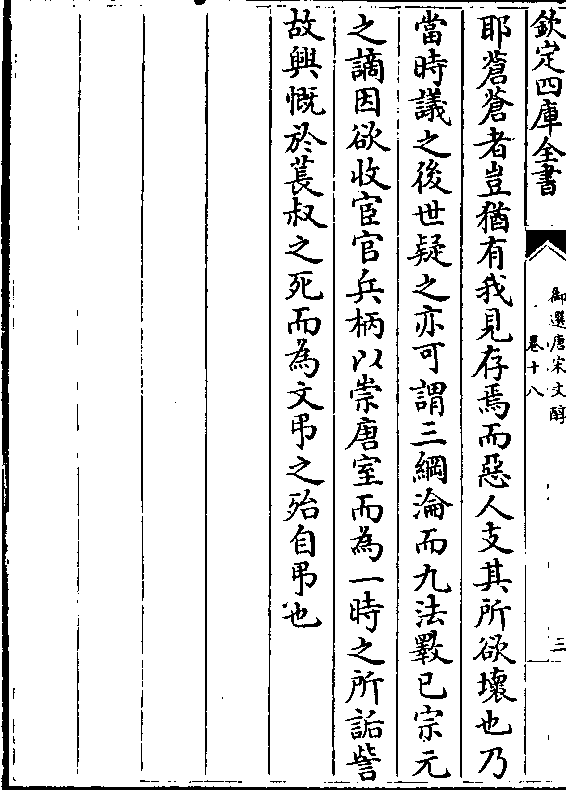 欽定四庫全書
御選唐宋文醇
卷十八
三
耶蒼蒼者豈猶有我見存焉而惡人支其所欲壞也乃
當時議之後世疑之亦可謂三綱淪而九法斁已宗元
之謫因欲收宦官兵柄以崇唐室而為一時之所詬訾
故興慨於萇叔之死而為文弔之殆自弔也